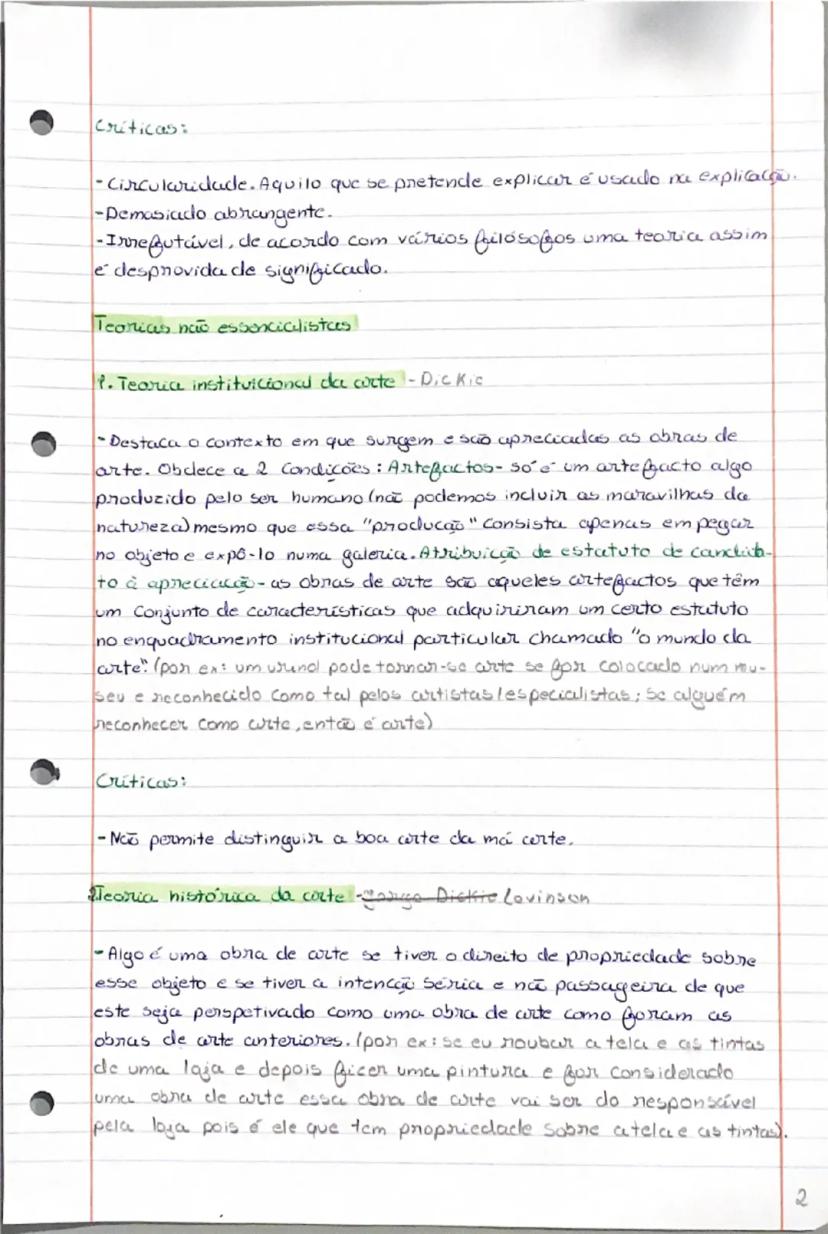 Críticas:
- Circularidade. Aquilo que se pretende explicar é usado na explicação.
- Demasiado abrangente.
- Irrefutável, de acordo com vários filósofos uma teoria assim
é desprovida de significado.
Teorias não essencialistas
1. Teoria instituicional da arte - Dickie
- Destaca o contexto em que surgem e são apreciadas as obras de
arte. Obdece a 2 condições: Artefactos - só é um artefacto algo
produzido pelo ser humano (não podemos incluir as maravilhas da
natureza) mesmo que essa "produção" consista apenas em pegar
no objeto e expô-lo numa galeria. Atribuição de estatuto de candida-
to à apreciação - as obras de arte são aqueles artefactos que têm
um conjunto de características que adquiriram um certo estatuto
no enquadramento institucional particular chamado "o mundo da
arte". (por ex: um urinol pode tornar-se arte se for colocado num mu-
seu e reconhecido como tal pelos artistas/especialistas; se alguém
reconhecer como arte, então é arte)
Críticas:
- Não permite distinguir a boa arte da má arte.
2. Teoria histórica da arte - George Dickie Levinson
- Algo é uma obra de arte se tiver o direito de propriedade sobre
esse objeto e se tiver a intenção séria e não passageira de que
este seja perspetivado como uma obra de arte como foram as
obras de arte anteriores. (por ex: se eu roubar a tela e as tintas
de uma loja e depois ficer uma pintura e for considerado
uma obra de arte essa obra de arte vai ser do responsável
pela loja pois é ele que tem propriedade sobre a tela e as tintas).
2